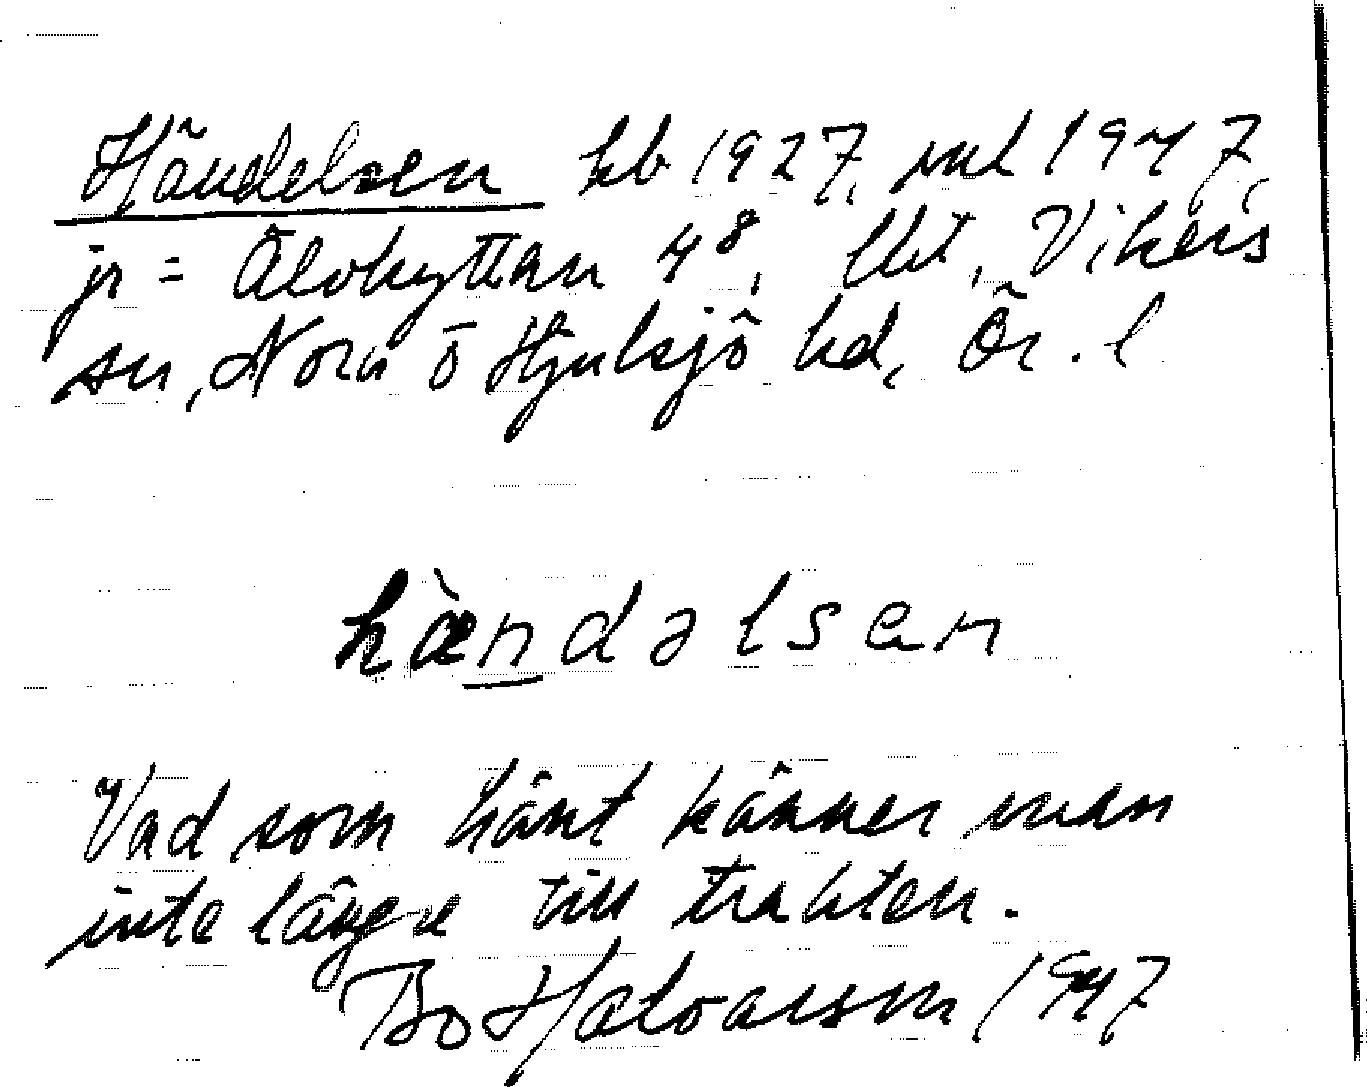 Händelsen kb 1927, uul 1947,
jr = Älvhyttan 4⁸, lllt, Vikers
sn, Nora o Hjulsjö hd, Ör. l
hàndəlsen
Vad som hänt känner man
inte längre till trakten.
Bo Halvarson 1947